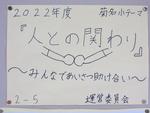 2022年度 菊知小テーマ
『人との関わり』
～みんなであいさつ助け合い～
2-5 運営委員会